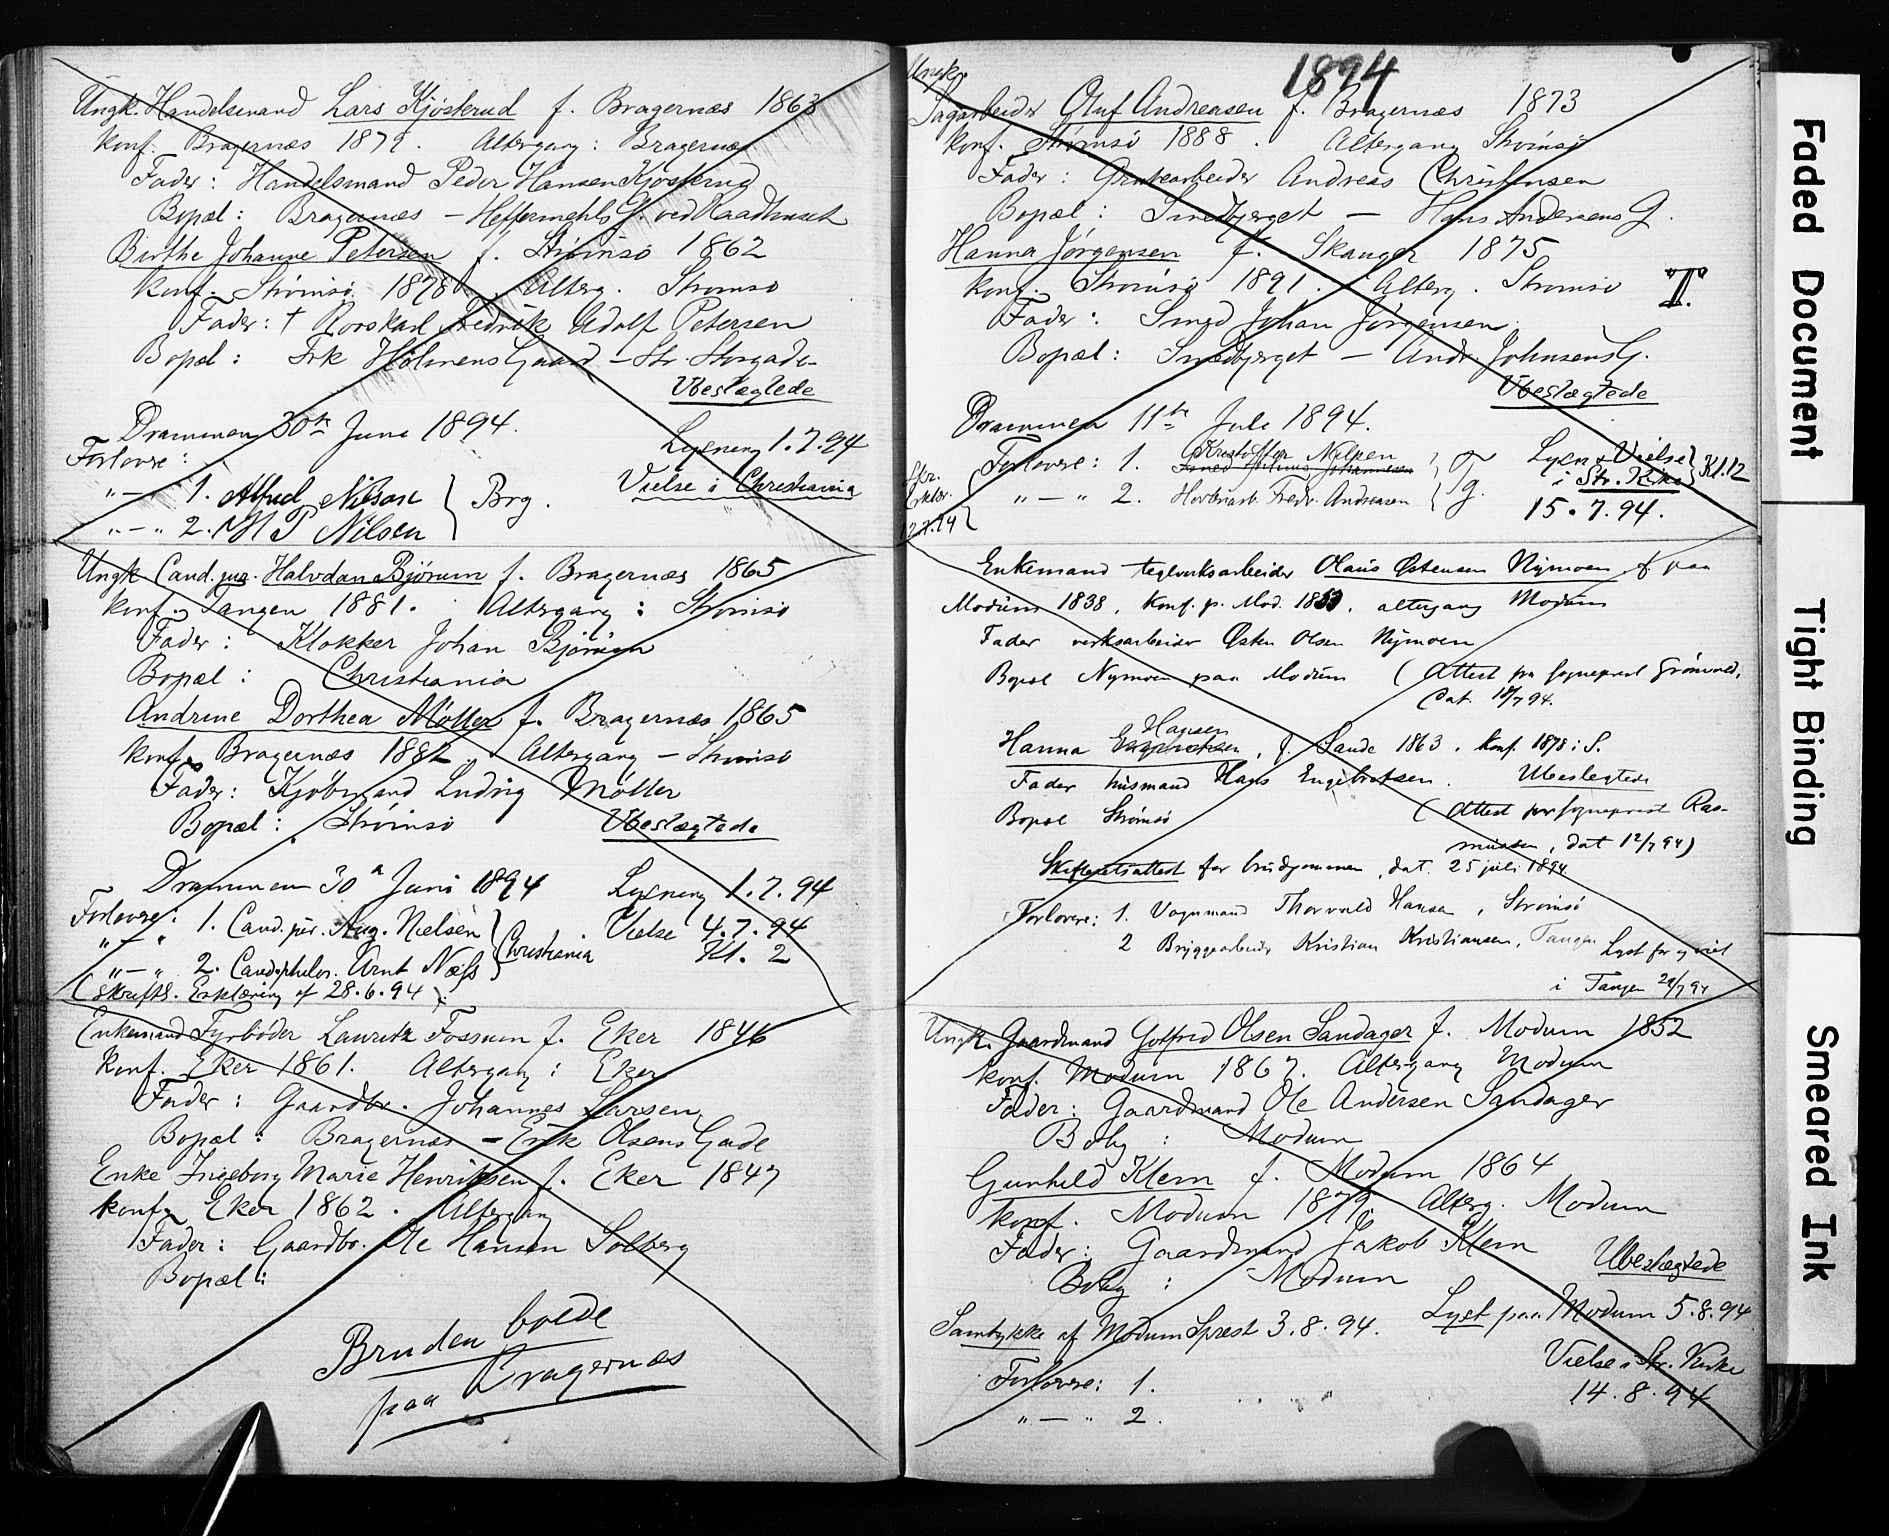 Ungk. Handelsmand Lars Kjøsterud f. Bragernæs 1863
konf. Bragernæs 1879. Altergang: Bragernæs
Fader: Handelsmand Peder Hansen Kjøsterud
Bopæl: Bragernæs — Heffermehls G. ved Raadhuset
Birthe Johanne Petersen f. Strømsø 1862
konf. Strømsø 1878. Alterg. Strømsø
Fader: † Rorskarl Fredrik Adolf Petersen
Bopæl: Frk Holmens Gaard — Str. Storgade
Ubeslægtede
Drammen 30te Juni 1894.
Lysning 1.7.94
Forlovere:
Vielse i Christiania
"—" 1. Alfred Nilsen } Brg.
"—" 2. M P Nilsen
Ungk. Cand. Halvdan Bjørum f. Bragernæs 1865
konf. Tangen 1881. Altergang: Strømsø
Fader: Klokker Johan Bjørum
Bopæl: Christiania
Andrine Dorthea Møller f. Bragernæs 1865
konf. Bragernæs 1882. Altergang — Strømsø
Fader: Kjøbmand Ludvig Møller
Bopæl: Strømsø
Ubeslægtede
Drammen 30 Juni 1894
Lysning 1.7.94
Forlovere: 1. Cand. jur. Aug. Nielsen } Christiania
Vielse 4.7.94
Kl. 2
"—" 2. Cand. philos. Arnt Næss
(Skriftl. Erklæring af 28.6.94).
Enkemand Fyrbøder Lauritz Fossum f. Eker 1846
konf. Eker 1861. Altergang: Eker
Fader: Gaardbr. Johannes Larsen
Bopæl: Bragernæs — Erik Olsens Gade
Enke Ingeborg Marie Henriksen f. Eker 1847
konf. Eker 1862. Altergang
Fader: Gaardbr. Ole Hansen Solberg
Bopæl:
Bruden boede
paa Bragernæs
1894
Ungk.
Sagarbeider Oluf Andreasen f. Bragernæs 1873
konf. Strømsø 1888. Altergang Strømsø
Fader: Andreas Christensen
Bopæl: Smedbjerget — Hans Andersens G.
Hanna Jørgensen f. Skauger 1875
konf. Strømsø 1891. Alterg. Strømsø
T.
Fader: Smed Johan Jørgensen.
Bopæl: Smedbjerget — Andr. Johnsens G.
Ubeslægtede
Drammen 11te Juli 1894.
Forlovere: 1. Kristoffer Nilsen } Tg.
Lysn. & Vielse } Kl. 12
i Str. Kirke
"—" 2. Fredr. Andreasen
15.7.94.
12.7.94
Enkemand teglverksarbeider Olaus Østensen Nymoen f. paa
Modum 1838, konf. p. Mod. 1853, altergang Modum
Fader verksarbeider Østen Olsen Nymoen
Bopæl Nymoen paa Modum (Attest fra sogneprest Grønvold,
Dat. 18/7 94.
Hansen
Hanna Engebretsen, f. Sande 1863. konf. 1878 i S.
Fader husmand Hans Engebretsen. Ubeslegtede
Bopæl Strømsø
(Attest fra sogneprest Ras-
mussen, dat 12/7 94)
Skifteretsattest for brudgommen, dat. 25 juli 1894
Forlovere: 1. Vognmand Thorvald Hansen, Strømsø
2 Bryggearbeider Kristian Kristiansen, Tangen
Lyst for og viet
i Tangen 29/7 94
Ungk. Gaardmand Gotfred Olsen Sandager f. Modum 1852
konf. Modum 1867. Altergang Modum
Fader: Gaardmand Ole Andersen Sandager
Bolig: Modum
Gunhild Klem f. Modum 1864
konf. Modum 1879. Alterg. Modum
Fader: Gaardmand Jakob Klem
Ubeslægtede
Bolig: Modum
Lyst paa Modum 5.8.94
Samtykke af Modums Prest 3.8.94.
Vielse i Str. Kirke
Forlovere: 1.
14.8.94
"—" 2.
Faded Document
Tight Binding
Smeared Ink